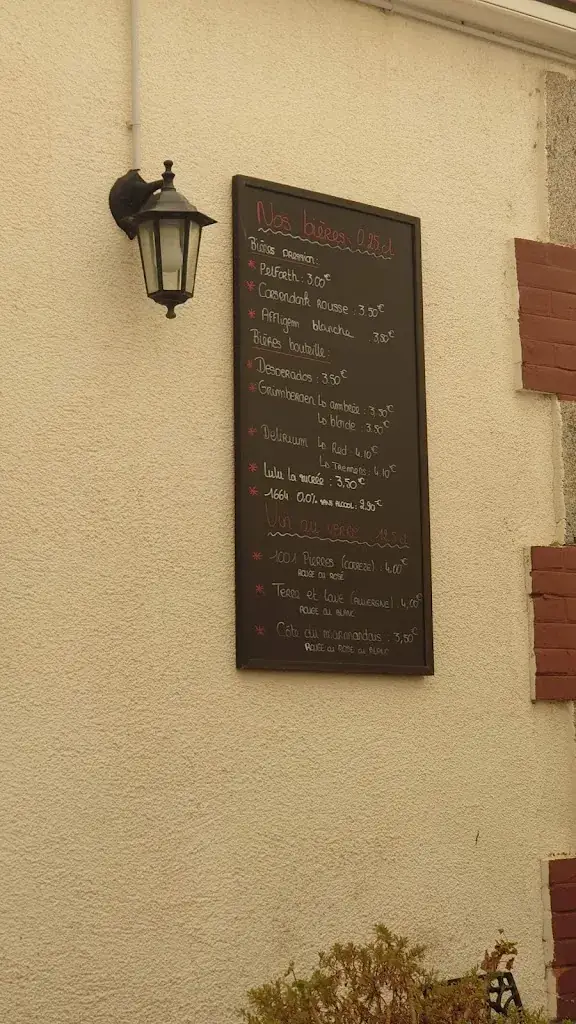 Nos bières 0,25cl
Bières pression:
* Pelforth : 3.00€
* Casendark rousse : 3.50€
* Affligem blanche : 3,50€
Bières bouteille :
* Desperados : 3.50€
* Grimbergen La ambrée : 3.50€
La blonde : 3.50€
* Delirium La Red : 4.10€
La Tremens : 4.10€
* Lulu la : 3,50€
* 1664 0.0% sans alcool : 2.90€
Vin au verre 12.5cl
* 1001 Pierres (Correze) : 4,00€
Rouge ou Rosé
* Terre et Lave (Auvergne) : 4,00€
Rouge ou Blanc
* Côte du marmandais : 3,50€
Rouge ou Rosé ou Blanc